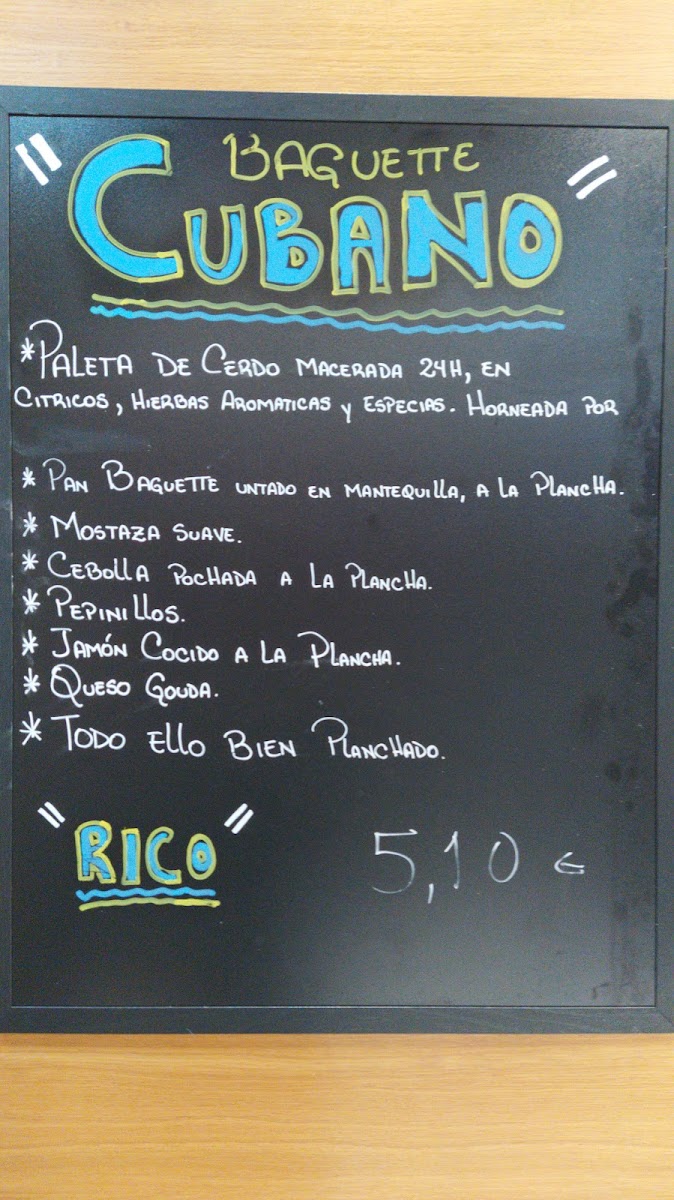 " BAGUETTE "
CUBANO
*PALETA DE CERDO MACERADA 24H, EN
CITRICOS, HIERBAS AROMATICAS Y ESPECIAS. HORNEADA POR
* PAN BAGUETTE UNTADO EN MANTEQUILLA, A LA PLANCHA.
* MOSTAZA SUAVE.
* CEBOLLA POCHADA A LA PLANCHA.
* PEPINILLOS.
* JAMÓN COCIDO A LA PLANCHA.
* QUESO GOUDA.
* TODO ELLO BIEN PLANCHADO.
"RICO"
5,10 €